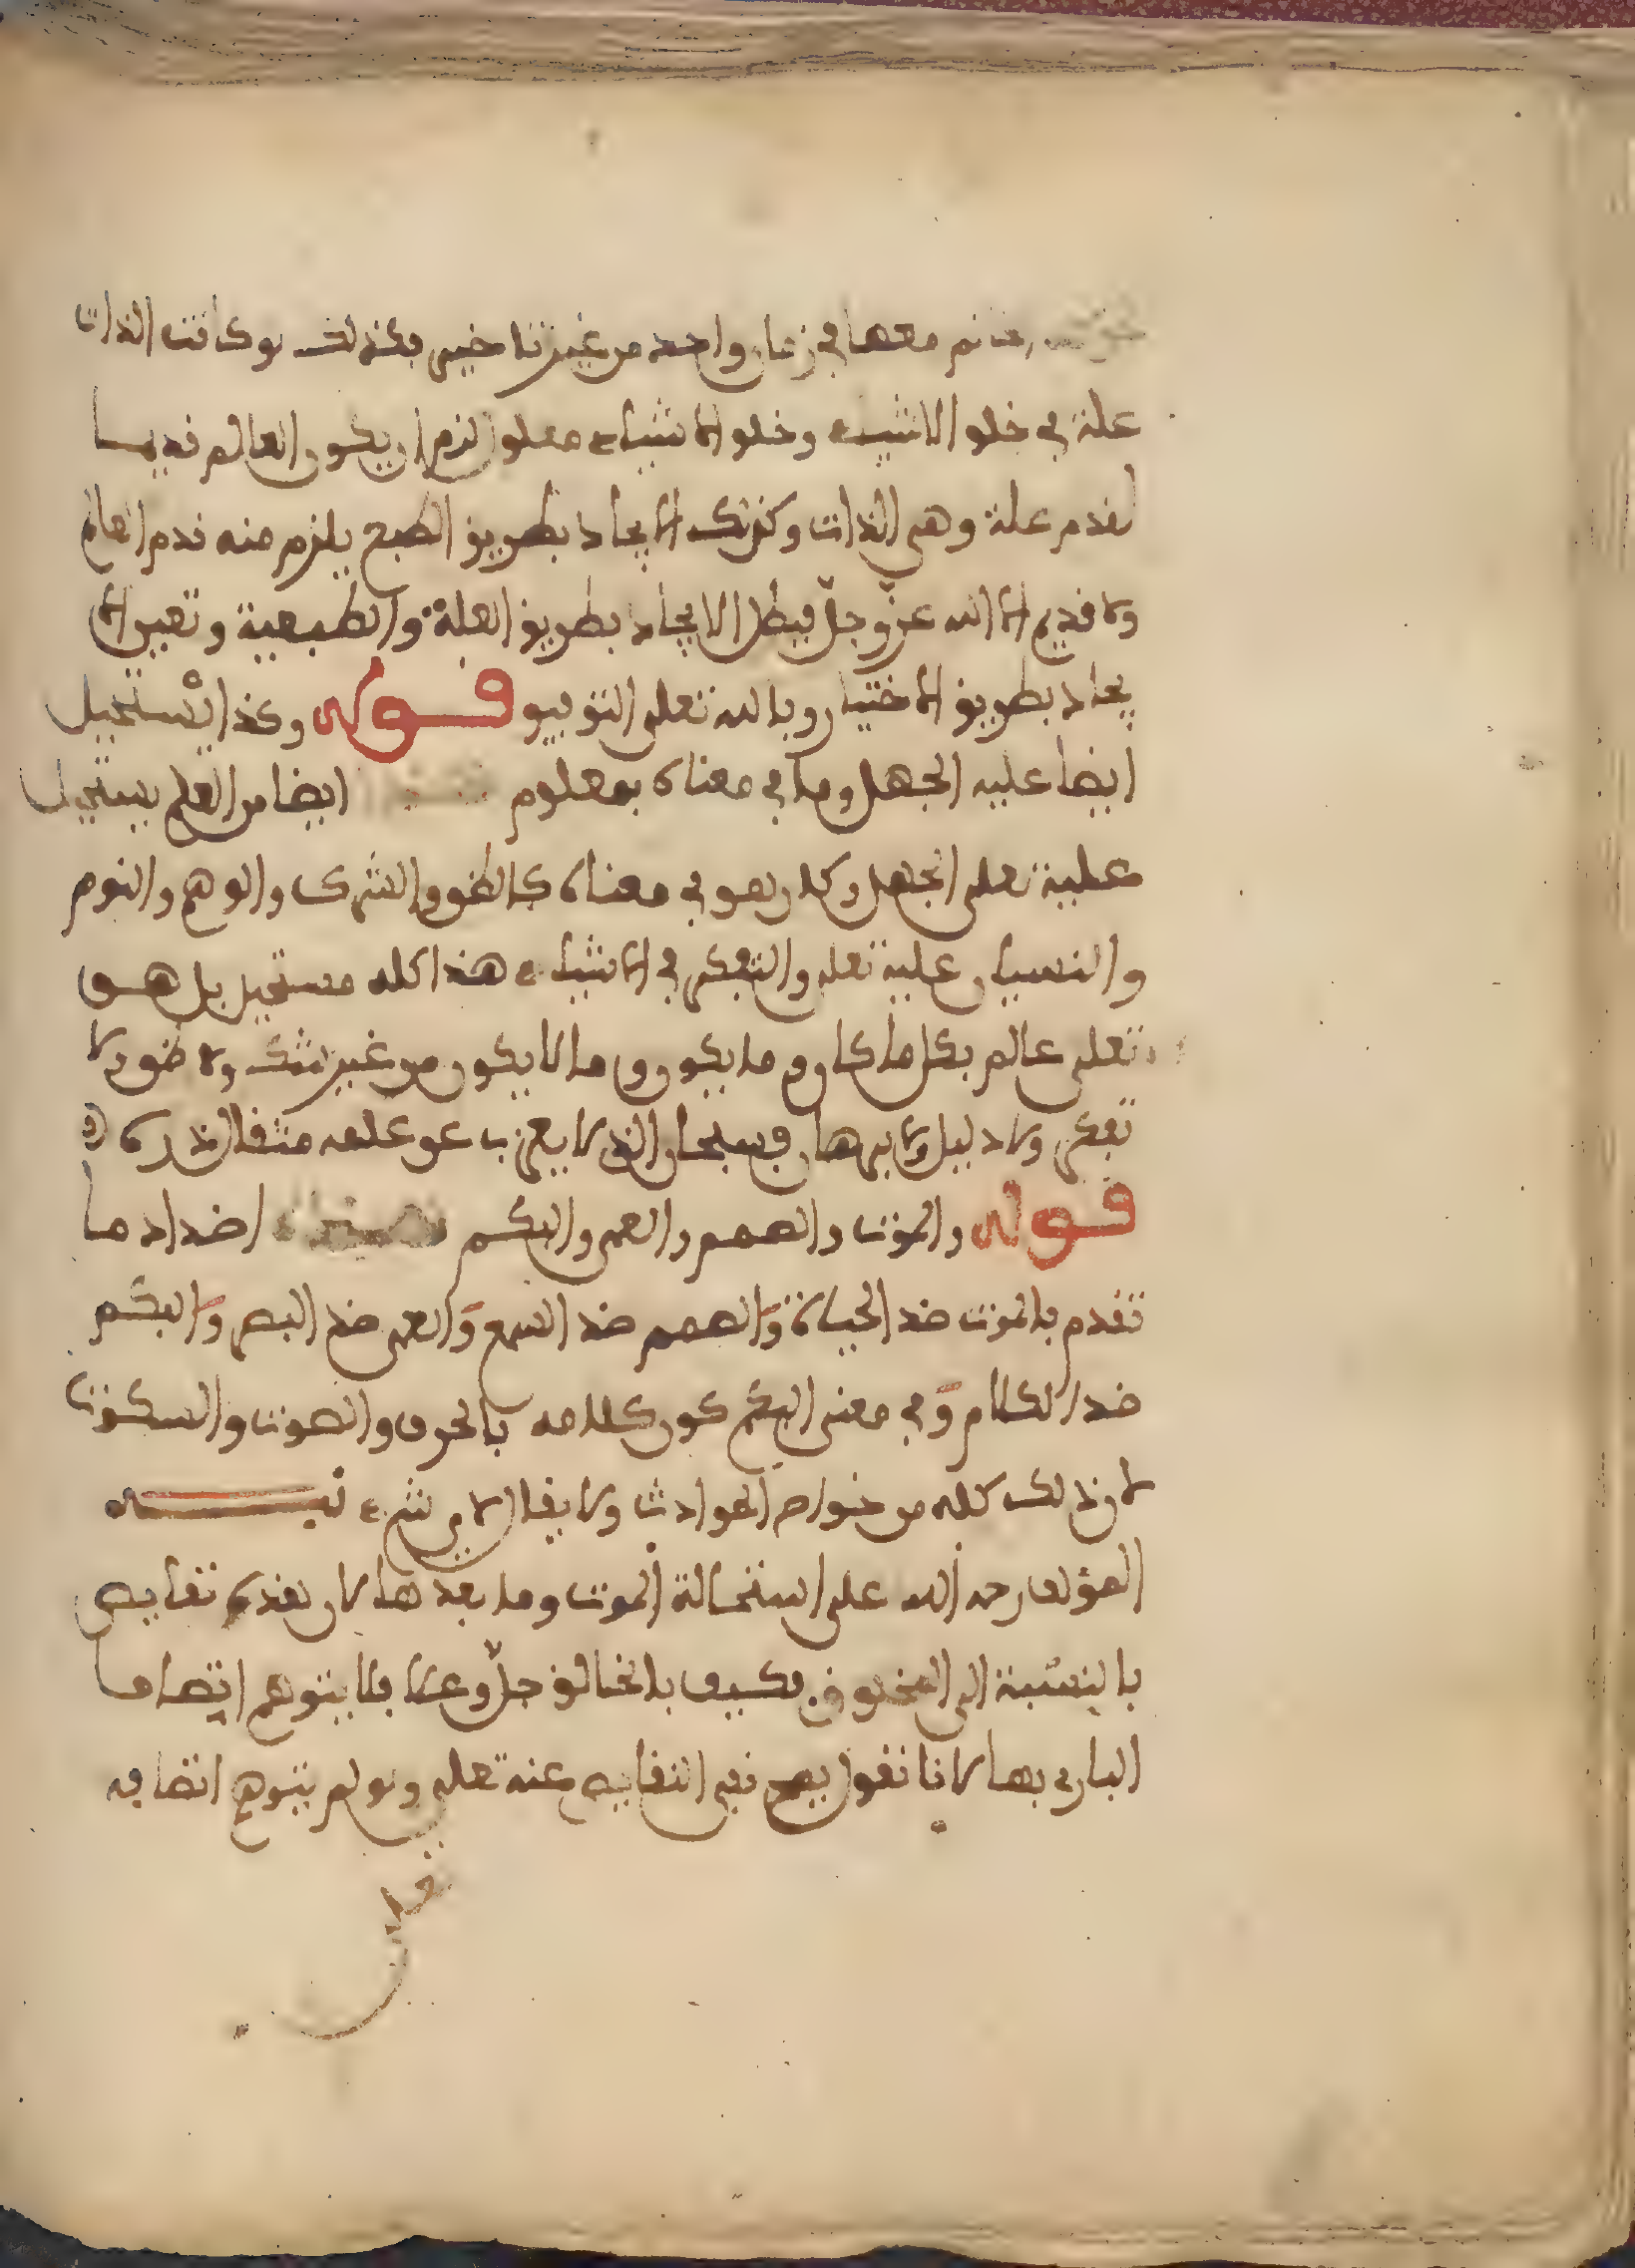 الخاتم معها في زمان واحد من غير تاخير فكذلك لو كانت الذات
علة في خلق الاشياء وخلق الاشياء معلول لزم ان يكون العالم قديما
لقدم علة وهي الذات وكذلك الايجاد بطريق الطبع يلزم منه قدم العالم
ولا قديم الا الله عز وجلّ فبطل الايجاد بطريق العلة والطبيعية وتعين الا
يجاد بطريق الاختيار وبالله تعلى التوفيق قوله وكذا يسْتحيل
ايضا عليه الجهل وما في معناه بمعلوم ايضا من العلم يستحيل
عليه تعلى الجهل وكل ما هو في معناه كالظن والشك والوهم والنوم
والنسيان عليه تعلى والتفكر في الاشياء هذا كله مستحيل بل هو
تعلى عالم بكل ما كان وما يكون وما لا يكون من غير شك ولا ظن ولا
تفكر ولا دليل ولا برهان فسبحان الذي لا يعزب عن علمه مثقال ذرة
قوله والموت والصمم والعمى والبكم اضداد ما
تقدم فالموت ضد الحياة والصمم ضد السمع والعمى ضد البصر والبكم
ضد الكلام وفي معنى البكم كون كلامه بالحرف والصوت والسكوت
لان ذلك كله من خواص الحوادث ولا يقال لاي شيء نبه
المؤلف رحمه الله على استحالة الموت وما بعدها لان هذه نقايص
بالنسبة الى المخلوق فكيف بالخالق جلّ وعلا فلا يتوهم اتصاف
الباري بها لانا نقول يصح نفي النقايص عنه تعلى ولو لم يتوهم اتصافه